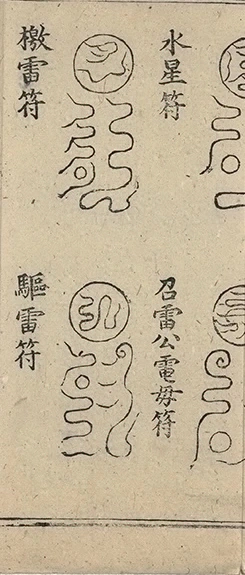 水星符
召雷公電毋符
檄雷符
驅雷符